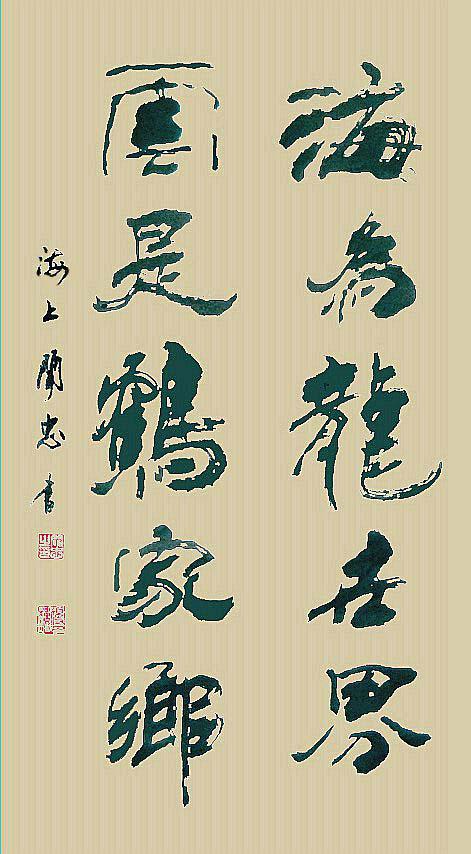 海為龍世界
雲是鶴家鄉
海上蘭忠書